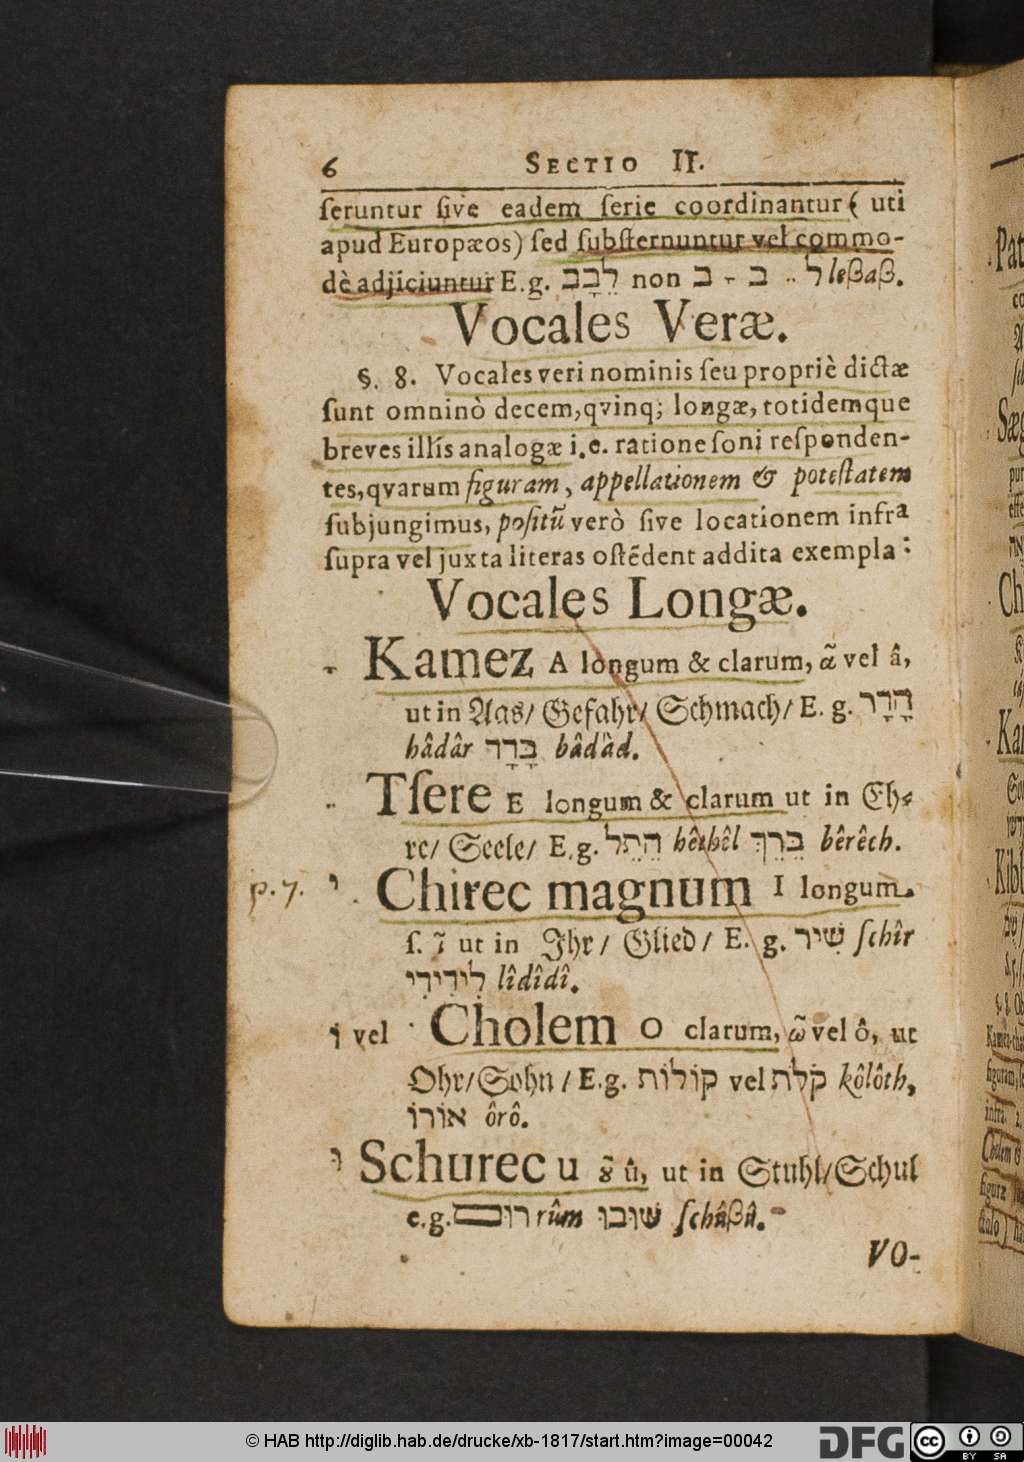 6 SECTIO II.
ſeruntur ſive eadem ſerie coordinantur ( uti
apud Europæos) ſed ſubſternuntur vel commo-
dè adjiciuntur E.g. לֵבָב non ל ֵ ב ָ ב leβaβ.
Vocales Veræ.
§. 8. Vocales veri nominis ſeu propriè dictæ
ſunt omninò decem, qvinq; longæ, totidemque
breves illis analogæ i.e. ratione ſoni reſponden-
tes, qvarum figuram, appellationem & poteſtatem
ſubjungimus, poſitũ verò ſive locationem infra
ſupra vel juxta literas oſtẽdent addita exempla:
Vocales Longæ.
ָ Kamez A longum & clarum, ᾶ vel â,
ut in Aas/ Gefahr/ Schmach/ E. g. הָדָר
hâdâr בָּדָד bâdâd.
ֵ Tſere E longum & clarum ut in Eh-
re/ Seele/ E.g. הֵתֵל hêthêl בֵּרֵךְ bêrêch.
p. 7. י ִ Chirec magnum I longum.
ſ. ῖ ut in Ihr/ Glied/ E. g. שִׁיר ſchîr
לִידִידִי lîdîdî.
וֹ vel ֹ Cholem O clarum, ῶ vel ô, ut
Ohr/ Sohn/ E.g. קוֹלוֹת vel קֹלֹת kôlôth,
אוֹרוֹ ôrô.
וּ Schurec u ȣ῀ û, ut in Stuhl/ Schul
e.g. רוּם rûm שׁוּבוּ ſchûβû.
VO-
© HAB http://diglib.hab.de/drucke/xb-1817/start.htm?image=00042
DFG
cc BY SA